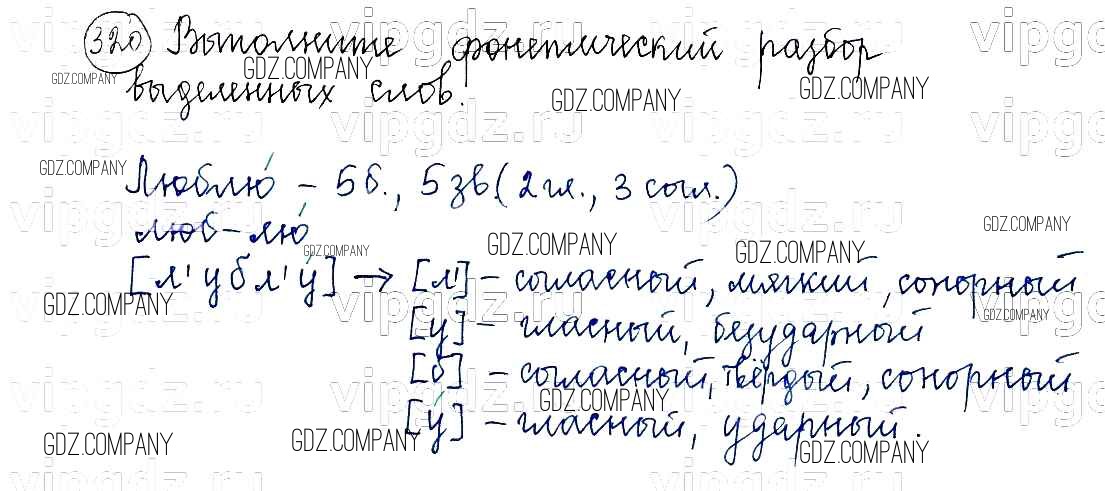 320 Выполните фонетический разбор
выделенных слов.
Люблю́ – 5 б., 5 зв. (2 гл., 3 согл.)
люб-лю́
[л'убл'у́] → [л'] – согласный, мягкий, сонорный
[у] – гласный, безударный
[б] – согласный, твёрдый, сонорный
[у́] – гласный, ударный.
GDZ.COMPANY
vipgdz.ru